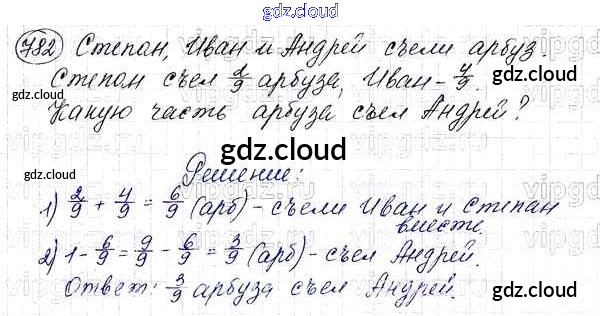 gdz.cloud
782 Степан, Иван и Андрей съели арбуз.
Степан съел 2/9 арбуза, Иван - 4/9.
Какую часть арбуза съел Андрей?
gdz.cloud
gdz.cloud
Решение:
1) 2/9 + 4/9 = 6/9 (арб) - съели Иван и Степан
вместе.
2) 1 - 6/9 = 9/9 - 6/9 = 3/9 (арб) - съел Андрей.
Ответ: 3/9 арбуза съел Андрей.
gdz.cloud
gdz.cloud